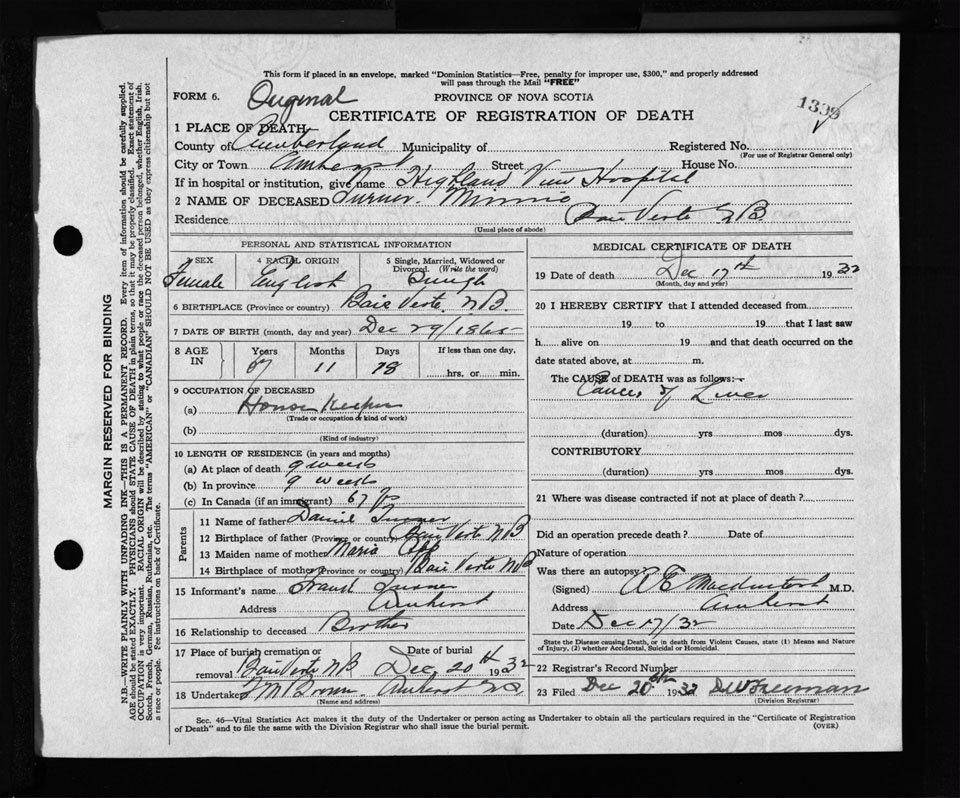 This form if placed in an envelope, marked "Dominion Statistics—Free, penalty for improper use, $300," and properly addressed
will pass through the Mail "FREE"
FORM 6. Original PROVINCE OF NOVA SCOTIA
CERTIFICATE OF REGISTRATION OF DEATH
1398
1 PLACE OF DEATH
County of Cumberland Municipality of Registered No.
(For use of Registrar General only)
City or Town Amherst Street House No.
If in hospital or institution, give name Highland View Hospital
2 NAME OF DECEASED Turner Minnie
Residence Baie Verte NB
(Usual place of abode)
PERSONAL AND STATISTICAL INFORMATION
3 SEX Female
4 RACIAL ORIGIN English
5 Single, Married, Widowed or Divorced. (Write the word) Single
6 BIRTHPLACE (Province or country) Baie Verte N.B.
7 DATE OF BIRTH (month, day and year) Dec 29/1865
8 AGE IN Years Months Days If less than one day,
67 11 18 hrs. or min.
9 OCCUPATION OF DECEASED
(a) House Keeper
(Trade or occupation or kind of work)
(b)
(Kind of industry)
10 LENGTH OF RESIDENCE (in years and months)
(a) At place of death 9 weeks
(b) In province 9 weeks
(c) In Canada (if an immigrant) 67 yrs
Parents
11 Name of father Daniel Turner
12 Birthplace of father (Province or country) Baie Verte NB
13 Maiden name of mother Maria
14 Birthplace of mother (Province or country) Baie Verte NB
15 Informant's name Frank Turner
Address Amherst
16 Relationship to deceased Brother
17 Place of burial cremation or removal Date of burial
Baie Verte NB Dec 20th 1932
18 Undertaker Brown Amherst NS
(Name and address)
MEDICAL CERTIFICATE OF DEATH
19 Date of death Dec 17th 1932
(Month, day and year)
20 I HEREBY CERTIFY that I attended deceased from
19 to 19 that I last saw
h alive on 19 and that death occurred on the
date stated above, at m.
The CAUSE of DEATH was as follows:-
Cancer of Liver
(duration) yrs mos dys.
CONTRIBUTORY.
(duration) yrs mos dys.
21 Where was disease contracted if not at place of death ?
Did an operation precede death ? Date of
Nature of operation
Was there an autopsy?
(Signed) MacIntosh M.D.
Address Amherst
Date Dec 17/32
State the Disease causing Death, or in death from Violent Causes, state (1) Means and Nature
of Injury, (2) whether Accidental, Suicidal or Homicidal.
22 Registrar's Record Number
23 Filed Dec 20th 1932 DW Freeman
(Division Registrar)
Sec. 46—Vital Statistics Act makes it the duty of the Undertaker or person acting as Undertaker to obtain all the particulars required in the "Certificate of Registration
of Death" and to file the same with the Division Registrar who shall issue the burial permit. (OVER)
MARGIN RESERVED FOR BINDING
N.B.—WRITE PLAINLY WITH UNFADING INK—THIS IS A PERMANENT RECORD. Every item of information should be carefully supplied.
AGE should be stated EXACTLY. PHYSICIANS should STATE CAUSE OF DEATH in plain terms, so that it may be properly classified. Exact statement of
OCCUPATION is very important. RACIAL ORIGIN will be described by stating to what people or race the deceased person belonged, whether English, Irish,
Scotch, French, German, Russian, Ruthenian, etc. The terms "AMERICAN" or "CANADIAN" SHOULD NOT BE USED as they express citizenship but not
a race or people. Fee instructions on back of Certificate.